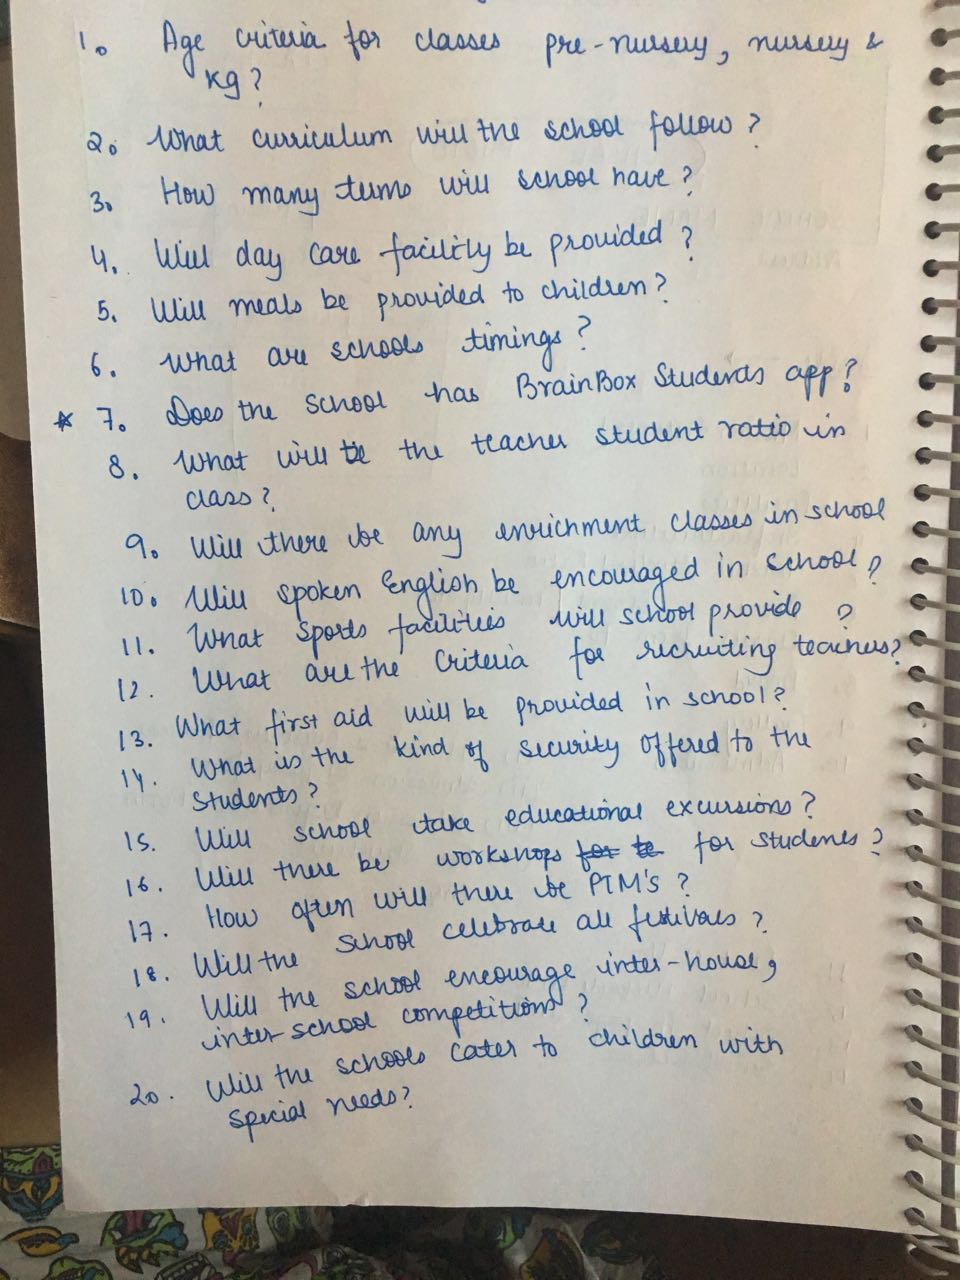 1. Age criteria for classes pre-nursery, nursery &
kg?
2. What curriculum will the school follow?
3. How many terms will school have?
4. Will day care facility be provided?
5. Will meals be provided to children?
6. What are schools timings?
* 7. Does the school has BrainBox Students app?
8. What will be the teacher student ratio in
class?
9. Will there be any enrichment classes in school
10. Will spoken English be encouraged in school?
11. What sports facilities will school provide?
12. What are the criteria for recruiting teachers?
13. What first aid will be provided in school?
14. What is the kind of security offered to the
students?
15. Will school take educational excursions?
16. Will there be workshops for students?
17. How often will there be PTM's?
18. Will the school celebrate all festivals?
19. Will the school encourage inter-house,
inter-school competitions?
20. Will the schools cater to children with
special needs?